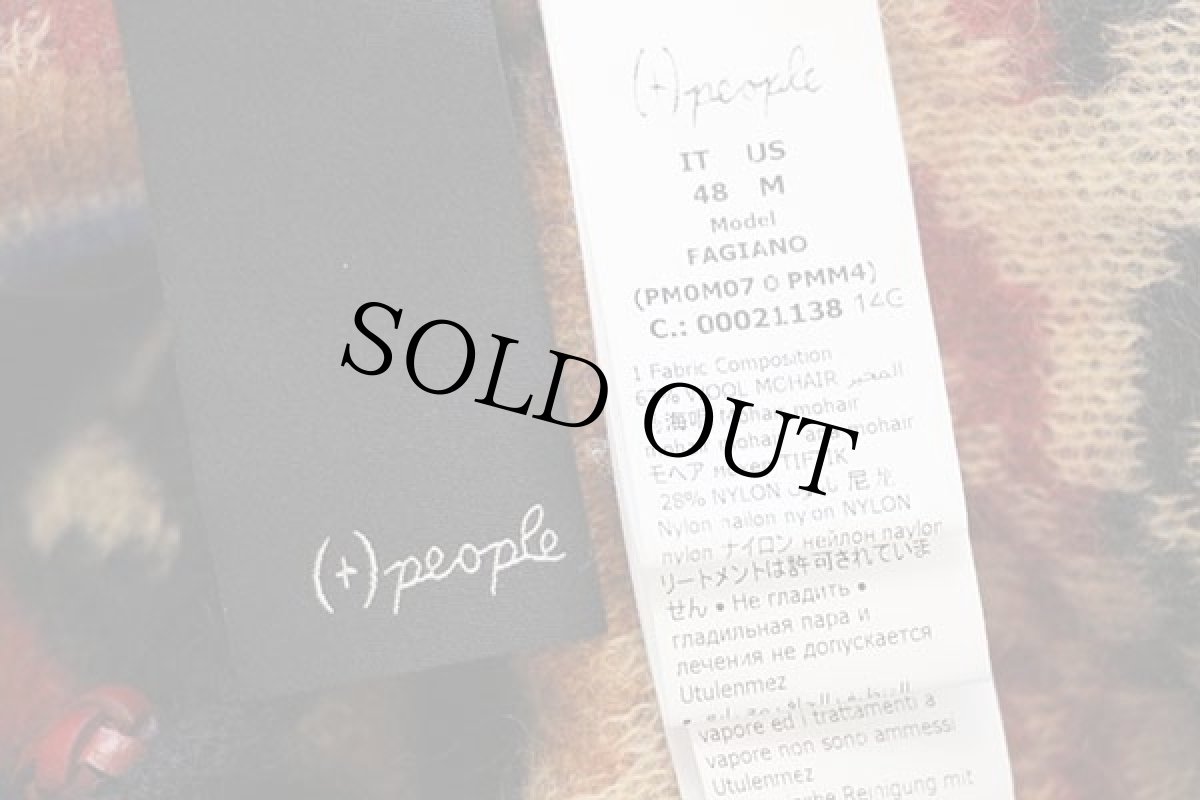 (+) people
SOLD OUT
(+) people
IT US
48 M
Model
FAGIANO
(PM0M07 0 PMM4)
C.: 00021138 14G
1 Fabric Composition
WOOL MOHAIR المخير
mohair
mohair
モヘア TIFTIK
28% NYLON 尼
Nylon nailon nylon NYLON
nylon ナイロン нейлон naylon
リートメントは許可されていま
せん • Не гладить •
гладильная пара и
лечения не допускается
Utulenmez
vapore ed i trattamenti a
vapore non sono ammessi
Utulenmez
Reinigung mit